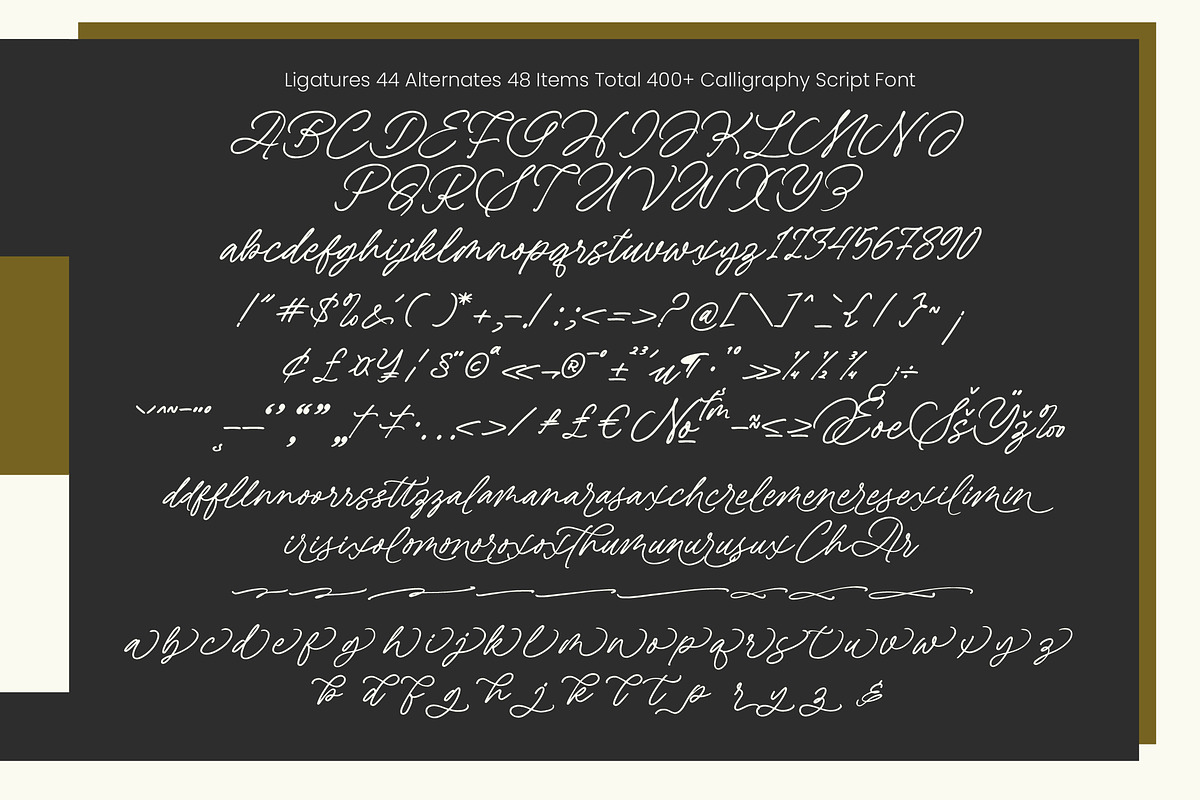 Ligatures 44 Alternates 48 Items Total 400+ Calligraphy Script Font
ABCDEFGHIJKLMNO
PQRSTUVWXYZ
abcdefghijklmnopqrstuvwxyz1234567890
!"#$%&'()*+,-./:;<=>?@[\]^_`{|}~¡
¢£¤¥¦§¨©ª«¬®¯°±²³´µ¶·¹º»¼½¾¿÷
ddffllnnoorrssttzzalamanarasaxchcrelemeneresexilimin
irisixolomonoroxoxThumunurusuxChAr
abcdefghijklmnopqrstuvwxyz
b d f g h j k l t p r y z &